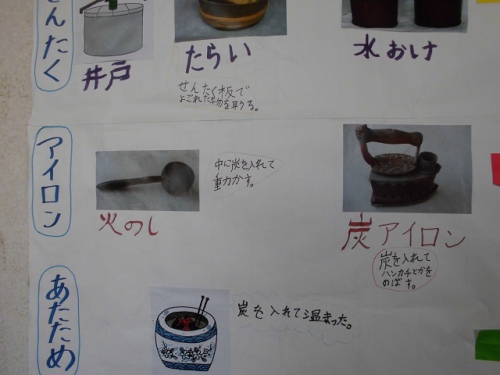 せんたく
井戸
たらい
水おけ
せんたく板で
よごれた物を
アイロン
火のし
中に炭を入れて
動かす。
炭アイロン
炭を入れて
ハンカチとかを
のばす。
あたため
炭を入れて温まった。